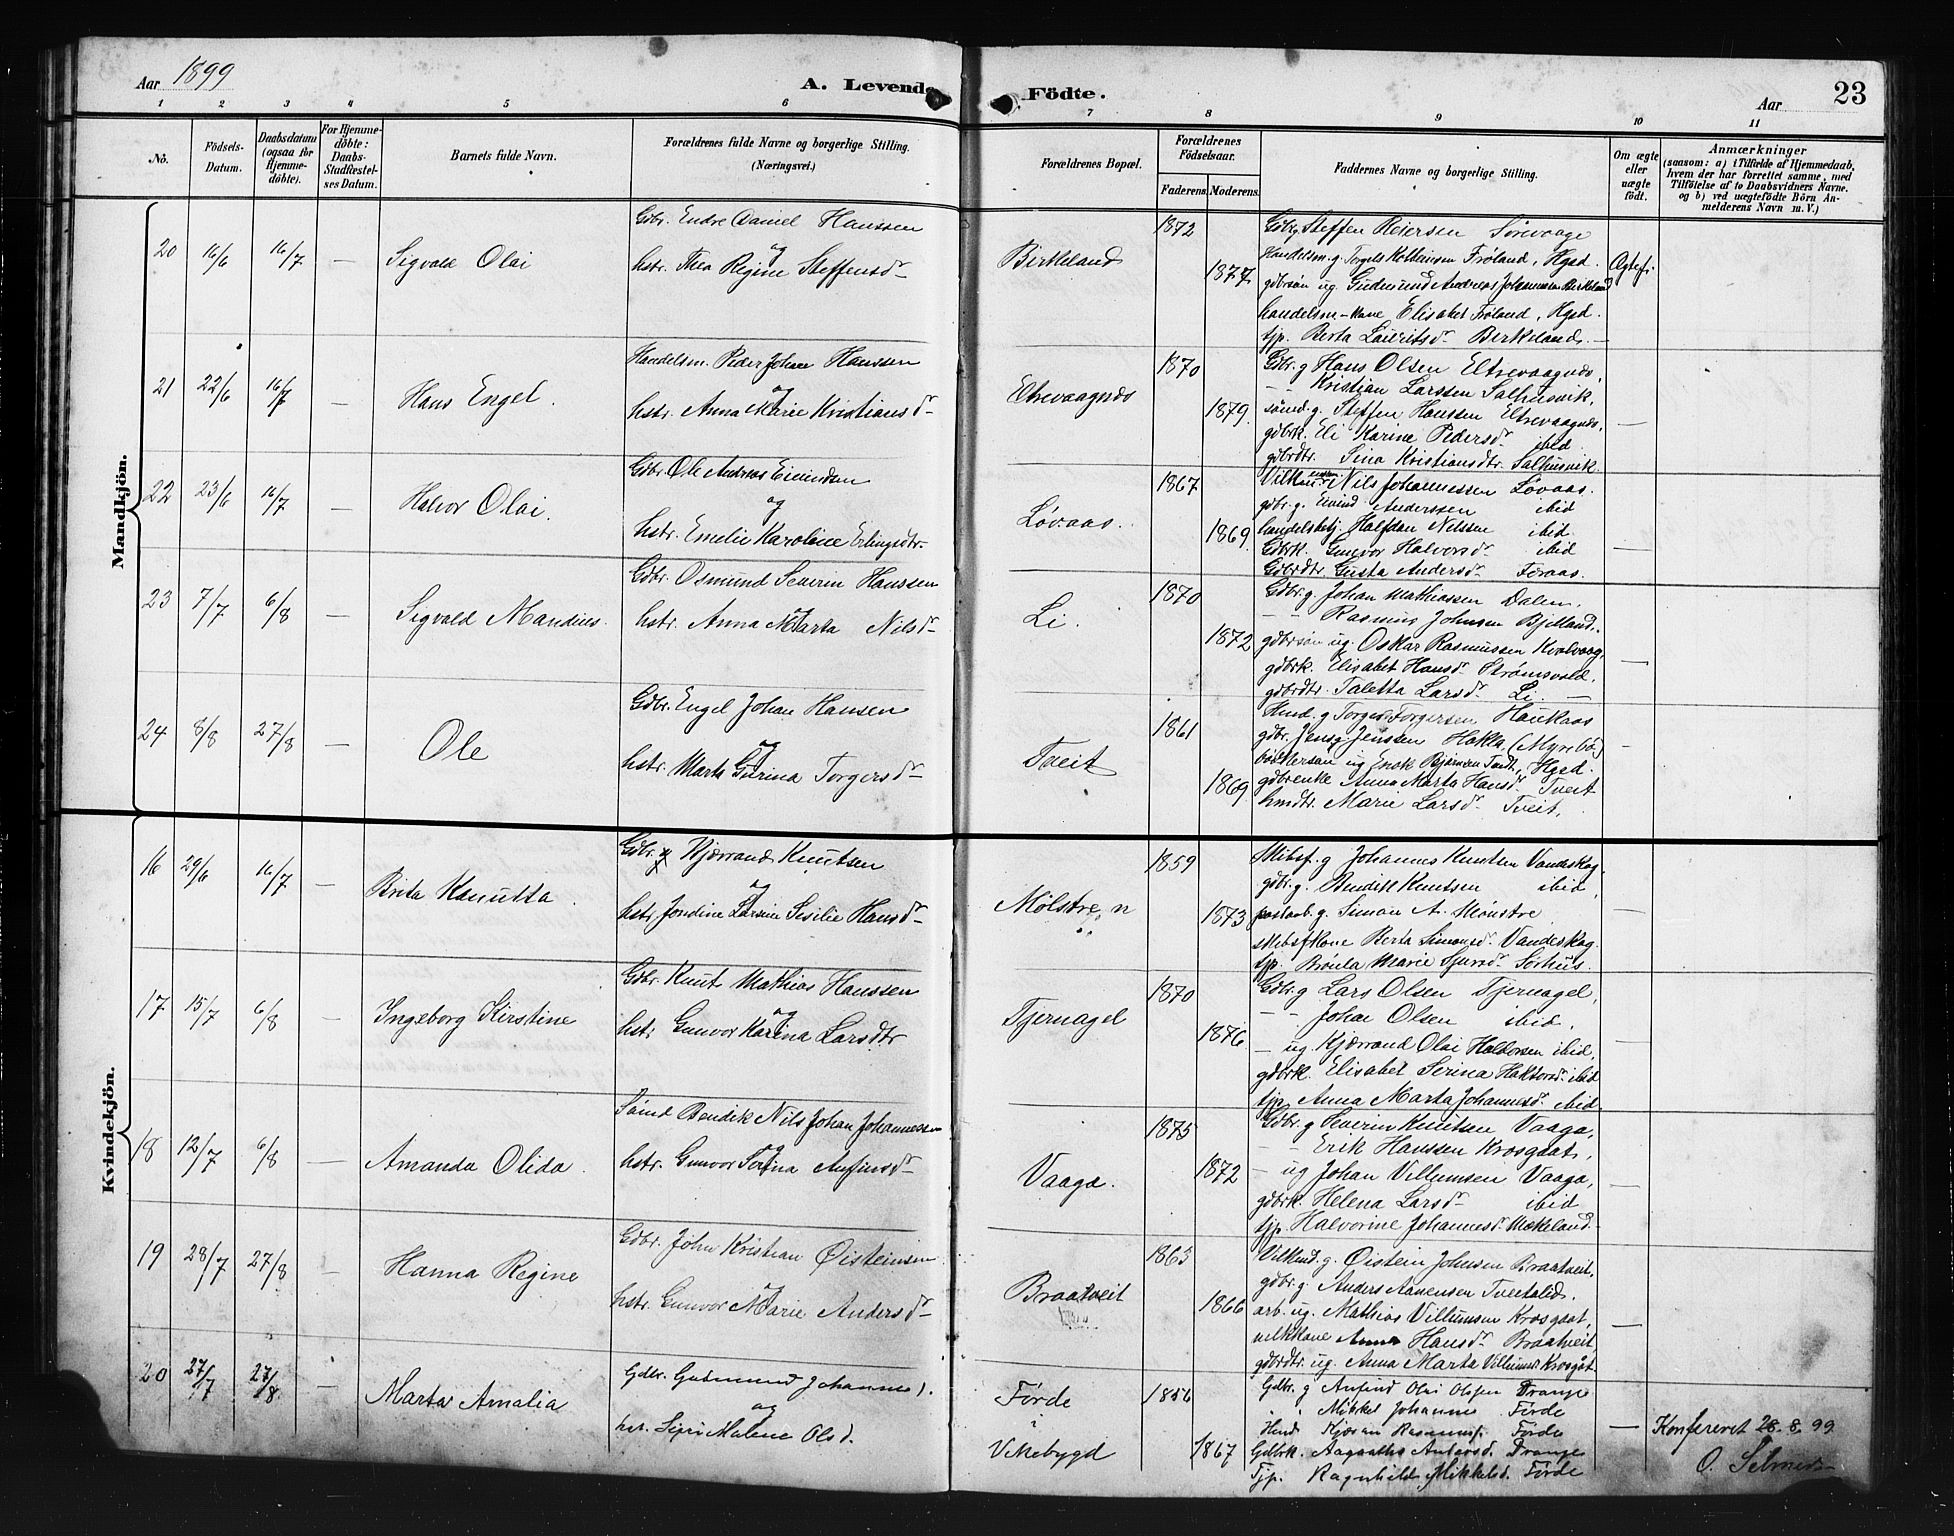 Aar 1899
A. Levende Födte.
Aar
23
1 2 3 4 5 6 7 8 9 10 11
No.
Födsels-Datum.
Daabsdatum (ogsaa for Hjemme-döbte).
For Hjemme-döbte: Daabs-Stadfæstel-ses Datum.
Barnets fulde Navn.
Forældrenes fulde Navne og borgerlige Stilling. (Næringsvei.)
Forældrenes Bopæl.
Forældrenes Födselsaar.
Faderens. Moderens.
Faddernes Navne og borgerlige Stilling.
Om ægte eller uægte födt.
Anmærkninger
(saasom: a) i Tilfælde af Hjemmedaab,
hvem der har forrettet samme, med
Tilföielse af to Daabsvidners Navne.
og b) ved uægtefödte Börn An-
melderens Navn m. V.)
Mandkjön.
20 16/6 16/7 — Sigvald Olai
Gdbr. Endre Daniel Hanssen
og
hstr. Thea Regine Steffensdr
Birkeland
1872
1877
Gdbr g Steffen Reiersen Sørevaage
Handelsm. g. Torgels Frøland, Hgsd.
gdbrsøn ug. Gudmund Andreas Johannesen Birkeland
handelsm-kone Elisabet Frøland, Hgsd.
tjp. Berta Lauritsdr Birkeland
Ægtef.
21 22/6 16/7 — Hans Engel.
Handelsm. Peder Johan Hanssen
og
hstr. Anna Marie Kristiansdr
Eltrevaagnæs
1870
1879
Gdbr. g Hans Olsen Eltrevaagnæs,
— — Kristian Larssen Salhusvik,
sømd. g. Steffen Hanssen Eltrevaagnæs,
gdbrk. Eli Karine Pedersdr ibid
gdbrdtr. Sina Kristiansdtr. Salhusvik.
—
22 23/6 16/7 Halvor Olai.
Gdbr. Ole Andreas Eivindsen
og
hstr. Emelie Karoline Erlingsdtr.
Løvaas.
1867
1869
Nils Johannessen Løvaas.
gdbr. g. Eivind Anderssen ibid
handelsbetj. Halfdan Nilssen ibid.
Gdbrk. Gunvor Halvorsdr ibid
Gdbrdtr. Gusta Andersdr Føvaas.
—
23 7/7 6/8 — Sigvald Mandius.
Gdbr. Osmund Severin Hanssen
og
hstr. Anna Marta Nilsdr
Li.
1870
1872
Gdbr. g. Johan Mathiassen Dalen,
— — Rasmus Johnsen Bjelland,
gdbrsøn ug. Oskar Rasmussen Kvalvaag,
gdbrk. Elisabet Hansdr Strømsvold,
gdbrdtr. Taletta Larsdr Li. —
—
24 8/8 27/8 — Ole
Gdbr. Engel Johan Hansen
og
hstr. Marta Gurina Torgersdr
Tveit
1861
1869
Hmd. g Torger Torgersen Haukaas
gdbr. Jens Jenssen Hokla (Myrebø)
ug Enok Bjørnsen Tveit, Hgsd.
gdbrenke Anna Marta Hansdr Tveit
hmdtr. Marie Larsdr Tveit,
—
Kvindekjön.
16 29/6 16/7 — Brita Kanutta.
Gdbr. g Kjærrand Knutsen
og
hstr. Jondine Larsine Sesilie Hansdr
Mølstre, n
1859
1873
Skibsf. g Johannes Knutsen Vandeskog,
gdbr. g. Bendik Knutsen ibid,
postaab. g. Simon A. Mønstre
skibsfkone Berta Simonsdr Vandeskog.
tjp. Brønla Marie Sjursdr Sørhus.
—
17 15/7 6/8 — Ingeborg Kirstine
Gdbr. Knut Mathias Hanssen
og
hstr Gunvor Karina Larsdtr
Tjernagel
1870
1876
Gdbr. g Lars Olsen Tjernagel,
— — Johan Olsen ibid,
— ug. Kjærrand Olai Haldorsen ibid,
gdbrk. Elisabet Serina Haktorsdr ibid
tjp. Anna Marta Johannesdr ibid.
—
18 12/7 6/8 — Amanda Olida.
Sømd Bendik Nils Johan Johannessen
og
hstr. Gunvor Serina Anfinsdr
Vaaga.
1875
1872
Gdbr. g Severin Knutsen Vaaga,
— — Erik Hanssen Krosgaat,
— ug Johan Villumsen Vaaga,
gdbrk. Helena Larsdr ibid
tjp. Halvorine Johannesdr Mækeland.
—
19 28/7 27/8 — Hanna Regine
Gdbr. John Kristian Øisteinsen
og
hstr. Gunvor Marie Andersdr
Braatveit
1863
1866
Vilkmd. g. Øistein Johnsen Braatveit,
gdbr. g. Anders Aanensen Tveitalid.
arb. ug. Mathias Villumsen Krosgaat,
vilkkone Anna Hansdr Braatveit,
gdbrdtr. ug. Anna Marta Villumsd Krosgåt
—
20 27/7 27/8 — Marta Amalia
Gdbr. Gudmund Johannes).
og
hst. Siri Malene Olsd.
Førde
i
Vikebygd
1856
1867
Gdbr. g Anfind Olai Olsen Drange
" " Mikkel Johannes Førde
Hmd Rasmuss. Førde
Gdbrk. Aagaatha Andersd. Drange
Tjp. Ragnhild Mikkelsd. Førde
—
Konfereret 28.8.99
O. Selmer